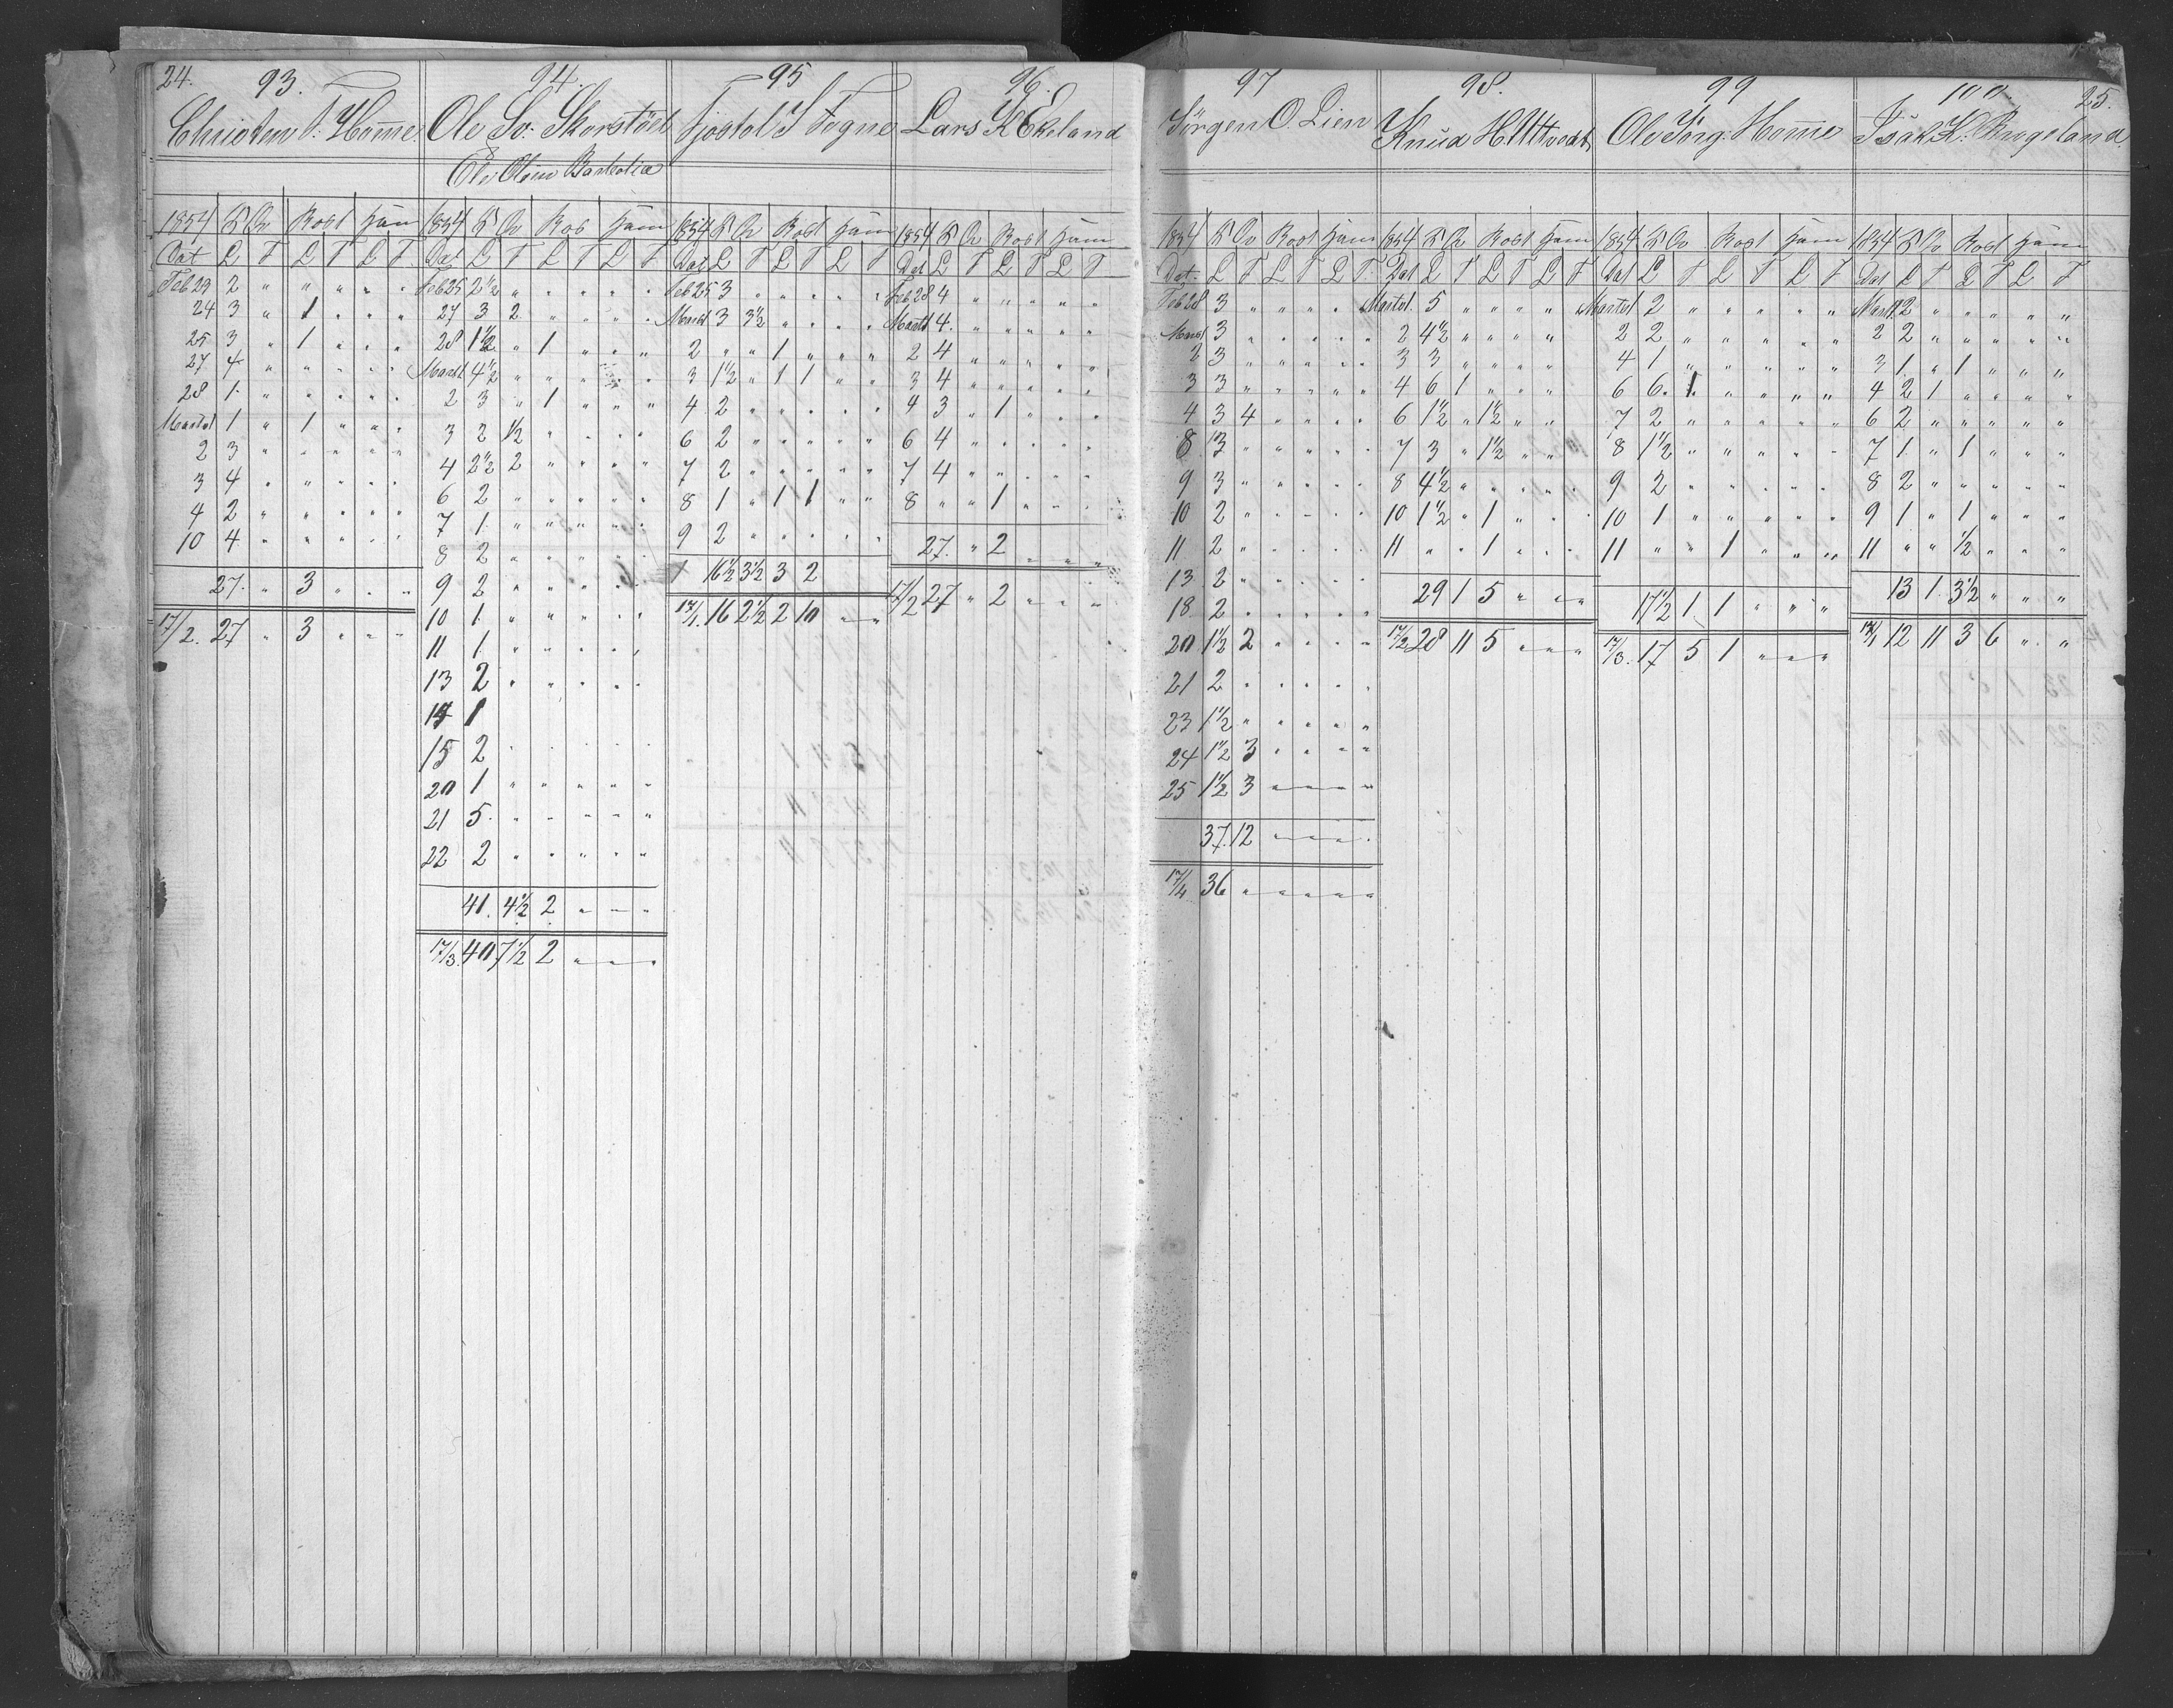 24.
93.
Christen T. Home.
1854 K Qv Rost Jam
Dat L T L T L T
Feb 29 2 " " " " "
24 3 " 1 " " "
25 3 " 1 " " "
27 4 " " " " "
28 1 " " " " "
Marts 1 1 " 1 " " "
2 3 " " " " "
3 4 " " " " "
4 2 " " " " "
10 4 " " " " "
27. " 3 " " "
17/2. 27 " 3 " " "
94.
Ole Sv. Skorstöel
Ole Olsen
1854 K Qv Ros Jam
Dat L T L T L T
Feb 25 2 1/2 " " " " "
27 3 2 " " " "
28 1 1/2 " 1 " " "
Marts 1 4 1/2 " " " " "
2 3 " 1 " " "
3 2 1/2 " " " "
4 2 1/2 2 " " " "
6 2 " " " " "
7 1 " " " " "
8 2 " " " " "
9 2 " " " " "
10 1 " " " " "
11 1 " " " " "
13 2 " " " " "
14 1
15 2 " " " " "
20 1 " " " " "
21 5 " " " " "
22 2 " " " " "
41. 4 1/2 2 " " "
17/3. 40 7 1/2 2 " " "
95
Fjostol S Fogne
1854 K Qv Rost Jam
Dat L T L T L T
Feb 25 3 " " " " "
Marts 1 3 3 1/2 " " " "
2 " " 1 " " "
3 1 1/2 " 1 1 " "
4 2 " " " " "
6 2 " " " " "
7 2 " " " " "
8 1 " 1 1 " "
9 2 " " " " "
16 1/2 3 1/2 3 2
17/1. 16 2 1/2 2 10 " "
96.
Lars K Ekeland
1854 K Qv Rost Jam
Dat L T L T L T
Feb 28 4 " " " " "
Marts 1 4. " " " " "
2 4 " " " " "
3 4 " " " " "
4 3 " 1 " " "
6 4 " " " " "
7 4 " " " " "
8 " " 1 " " "
27. " 2 " " "
17/2 27 " 2 " " "
97
Jörgen O. Lien
1854 K Qv Rost Jam
Dat. L T L T L T
Feb 28 3 " " " " "
Marts 1 3 " " " " "
2 3 " " " " "
3 3 " " " " "
4 3 4 " " " "
8 3 " " " " "
9 3 " " " " "
10 2 " " " " "
11 2 " " " " "
13 2 " " " " "
18 2 " " " " "
20 1 1/2 2 " " " "
21 2 " " " " "
23 1 1/2 " " " " "
24 1 1/2 3 " " " "
25 1 1/2 3 " " " "
37. 12 " " " "
17/4 36 " " " " "
98.
Knud H.
1854 K Qv Rost Jam
Dat L T L T L T
Marts 1. 5 " " " " "
2 4 1/2 " " " " "
3 3 " " " " "
4 6 1 " " " "
6 1 1/2 " 1 1/2 " " "
7 3 " 1 1/2 " " "
8 4 1/2 " " " " "
10 1 1/2 " 1 " " "
11 " " 1 " " "
29 1 5 " " "
17/2 28 11 5 " " "
99
Ole Jörg. Home
1854 K Qv Rost Jam
Dat L T L T L T
Marts 1 2 " " " " "
2 2 " " " " "
4 1 " " " " "
6 6. 1. " " " "
7 2 " " " " "
8 1 1/2 " " " " "
9 2 " " " " "
10 1 " " " " "
11 " " 1 " " "
17 1/2 1 1 " " "
17/3. 17 5 1 " " "
100
25.
Isak K. Ringeland.
1854 K Qv Rost Jam
Dat L T L T L T
Marts 1. 2 " " " " "
2 2 " " " " "
3 1. " 1 " " "
4 2 1 " " " "
6 2 " " " " "
7 1. " 1 " " "
8 2 " " " " "
9 1 " 1 " " "
11 " " 1/2 " " "
13 1. 3 1/2 " " "
17/1 12 11 3 6 " "